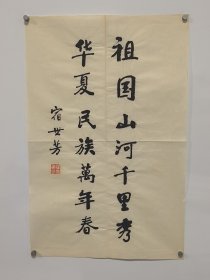 祖国山河千里秀
华夏民族萬年春
宿世芳